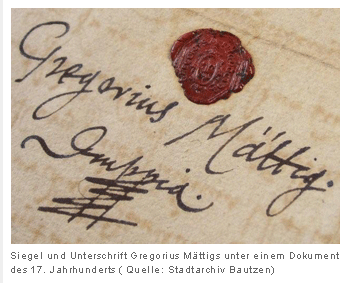 Gregorius Mättig.
Siegel und Unterschrift Gregorius Mättigs unter einem Dokument
des 17. Jahrhunderts ( Quelle: Stadtarchiv Bautzen)